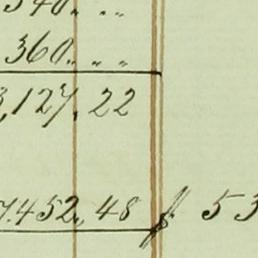 340 " "
360 " "
3,127. 22
7.452. 48 f 53